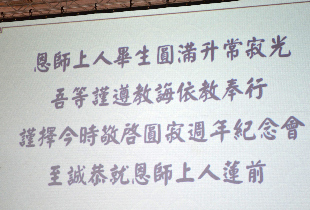 恩師上人畢生圓滿升常寂光
吾等謹遵教誨依教奉行
謹擇今時敬啓圓寂週年紀念會
至誠恭就恩師上人蓮前